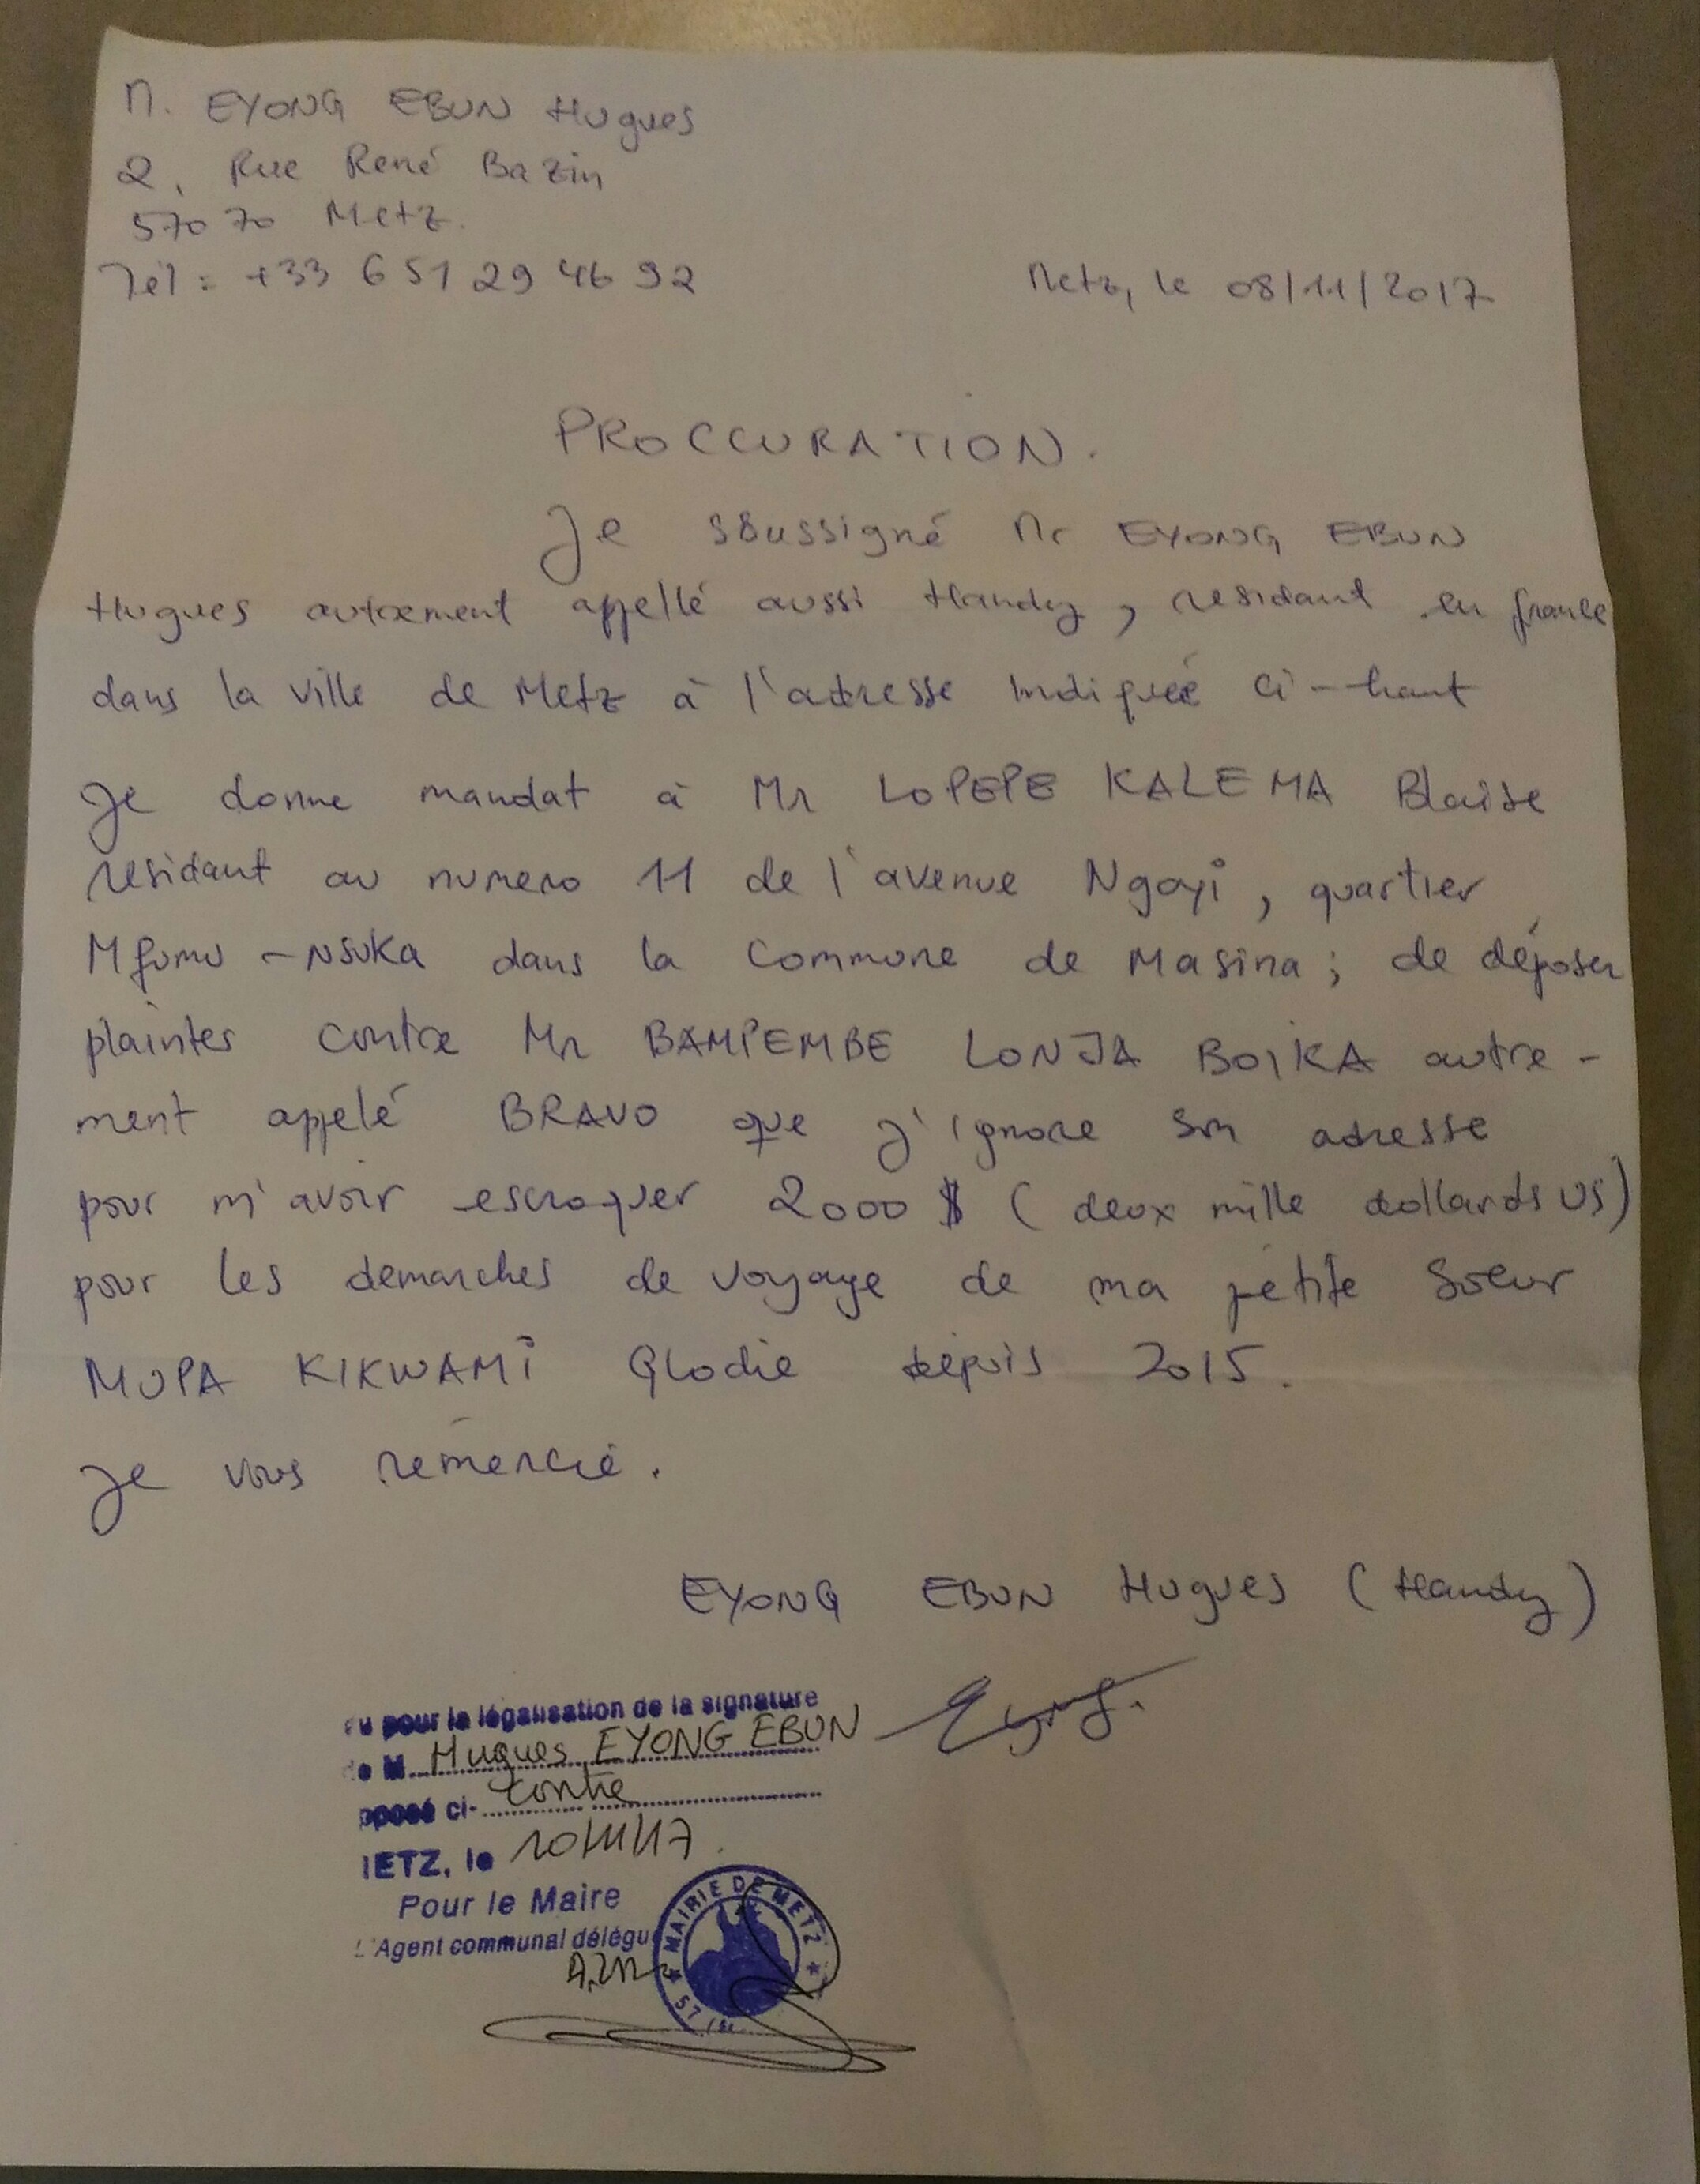 M. EYONG EBUN Hugues
2, Rue René Bazin
57070 Metz.
Tél : +33 6 51 29 46 92
Metz, le 08/11/2017
PROCCURATION.
Je soussigné Mr EYONG EBUN
Hugues autrement appellé aussi Handy, residant en france
dans la ville de Metz à l'adresse indiqueé ci-haut
Je donne mandat à Mr LOPEPE KALEMA Blaise
residant au numero 11 de l'avenue Ngoyi, quartier
Mfumu-NSUKA dans la Commune de Masina; de déposer
plaintes contre Mr BAMPEMBE LONJA BOIKA autre-
ment appelé BRAVO que j'ignore son adresse
pour m'avoir escroquer 2000 $ (deux mille dollards US)
pour les demarches de voyage de ma petite Soeur
MUPA KIKWAMI Glodie depuis 2015.
Je vous remercie.
EYONG EBUN Hugues (Handy)
u pour la légalisation de la signature
e M. Hugues EYONG EBUN
pposé ci- contre
IETZ, le 10/11/17
Pour le Maire
L'Agent communal délégu
MAIRIE DE METZ
57